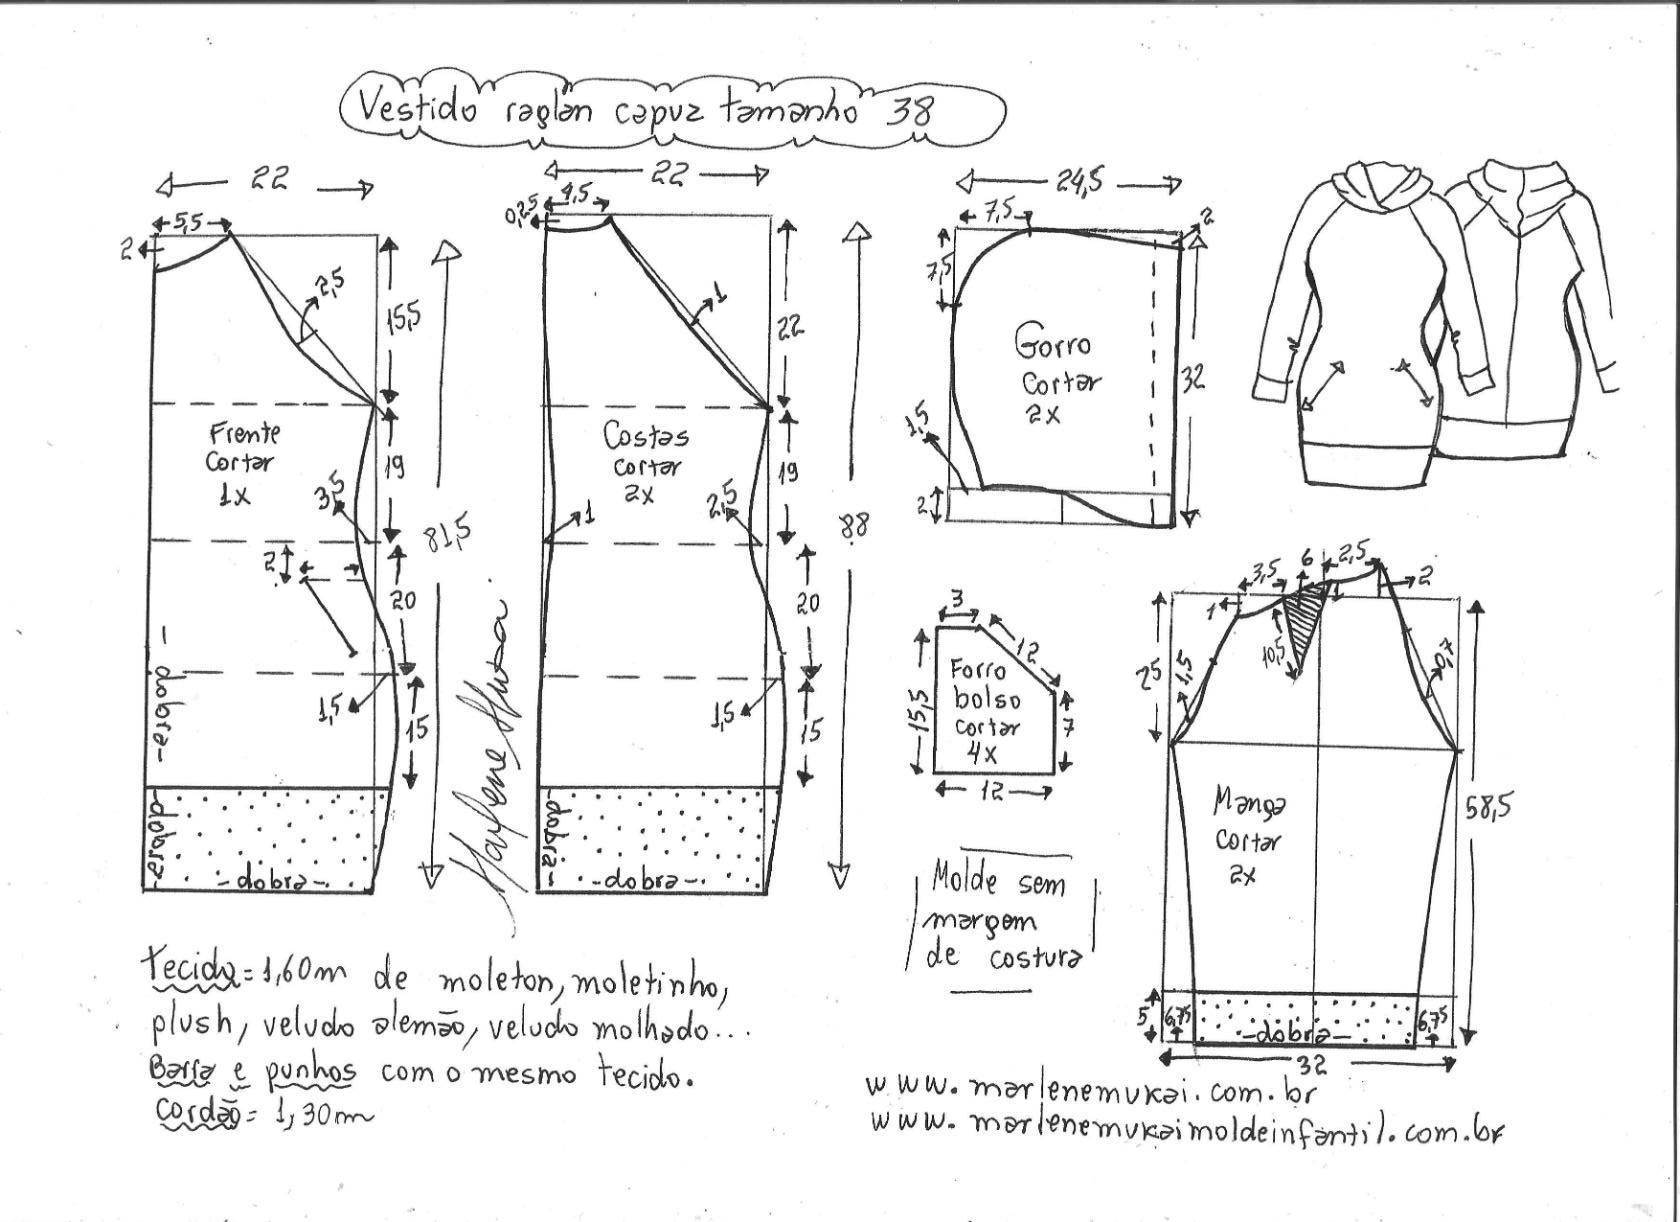 Vestido raglan capuz tamanho 38
22
5,5
2
2,5
15,5
Frente
Cortar
1x
19
3,5
2
20
1,5
15
81,5
-dobra-
-dobra-
-dobra-
22
4,5
0,25
1
22
Costas
cortar
2x
19
1
2,5
20
1,5
15
88
dobra-
-dobra-
24,5
7,5
2
7,5
Gorro
cortar
2x
32
1,5
2
3
12
Forro
bolso
cortar
4x
15,5
7
12
6
3,5
2,5
1
1
2
10,5
25
1,5
0,7
Manga
cortar
2x
58,5
5
6,75
-dobra-
6,75
32
Molde sem
margem
de costura
Tecido=1,60m de moleton, moletinho,
plush, veludo alemão, veludo molhado...
Barra e punhos com o mesmo tecido.
Cordão= 1,30m
www.marlenemukai.com.br
www.marlenemukaimoldeinfantil.com.br